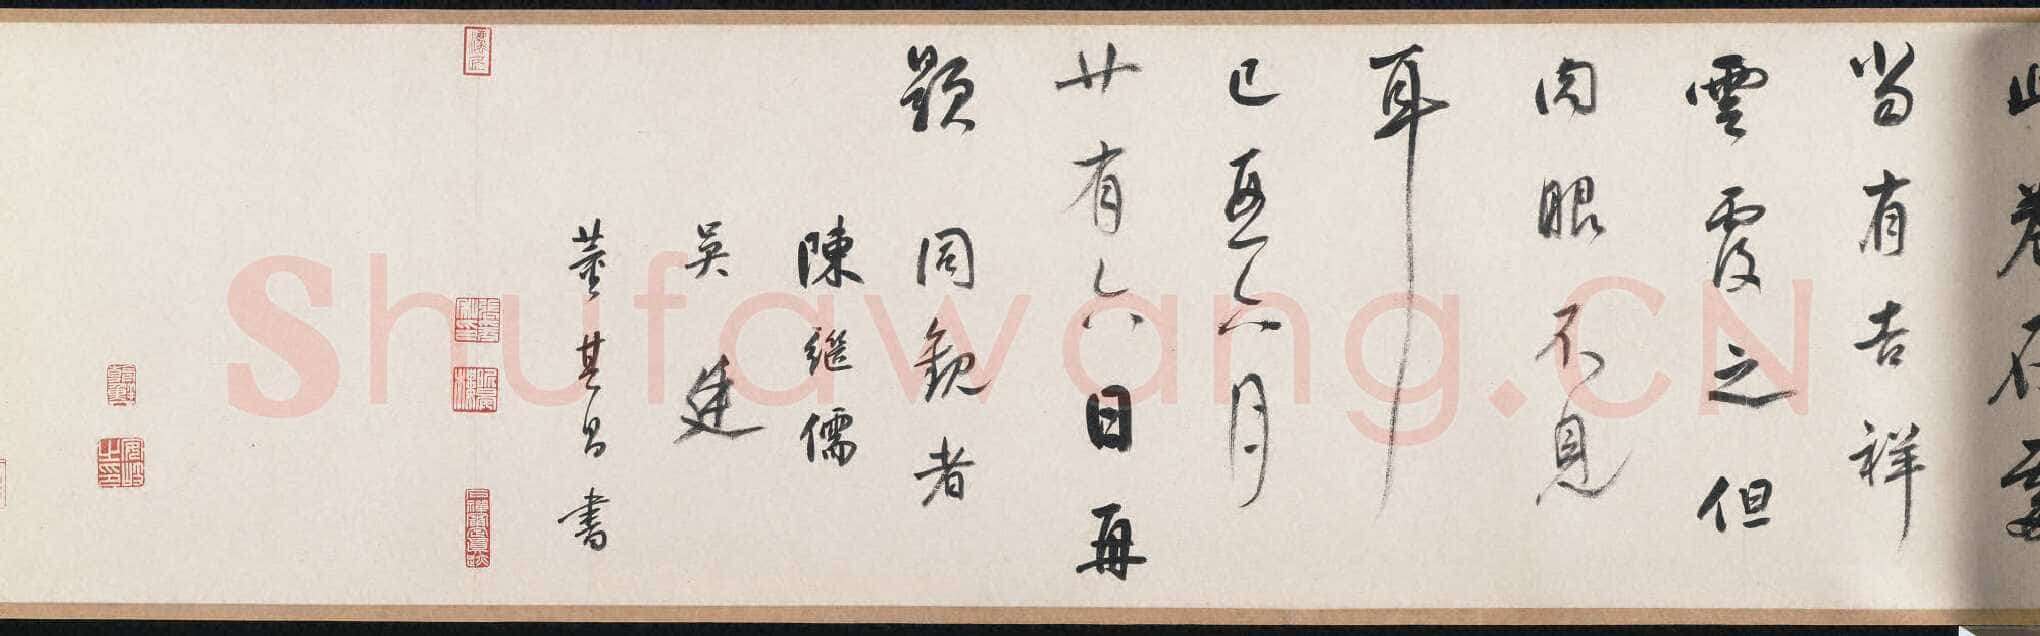 此卷在處
當有吉祥
雲覆之但
肉眼不見
耳
己丑六月
廿有六日再
題 同觀者
陳繼儒
吳廷
董其昌書
Shufawang.CN